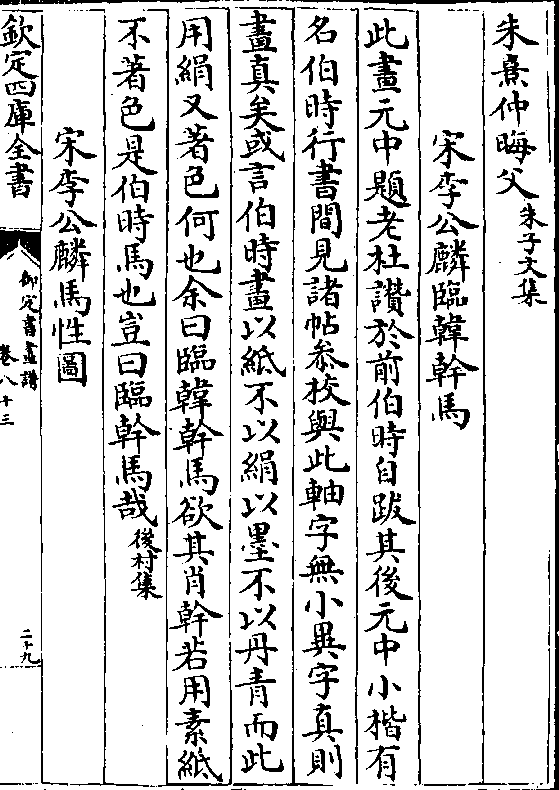 朱熹仲晦父朱子文集
宋李公麟臨韓幹馬
此畫元中題老杜讚於前伯時自跋其後元中小揩有
名伯時行書間見諸帖叅校與此軸字無小異字真則
畫真矣或言伯時畫以紙不以絹以墨不以丹青而此
用絹又著色何也余曰臨韓幹馬欲其肖幹若用素紙
不著色是伯時馬也豈曰臨幹馬哉後村集
宋李公麟馬性圖
欽定四庫全書
御定書畫譜
卷八十三
二十九